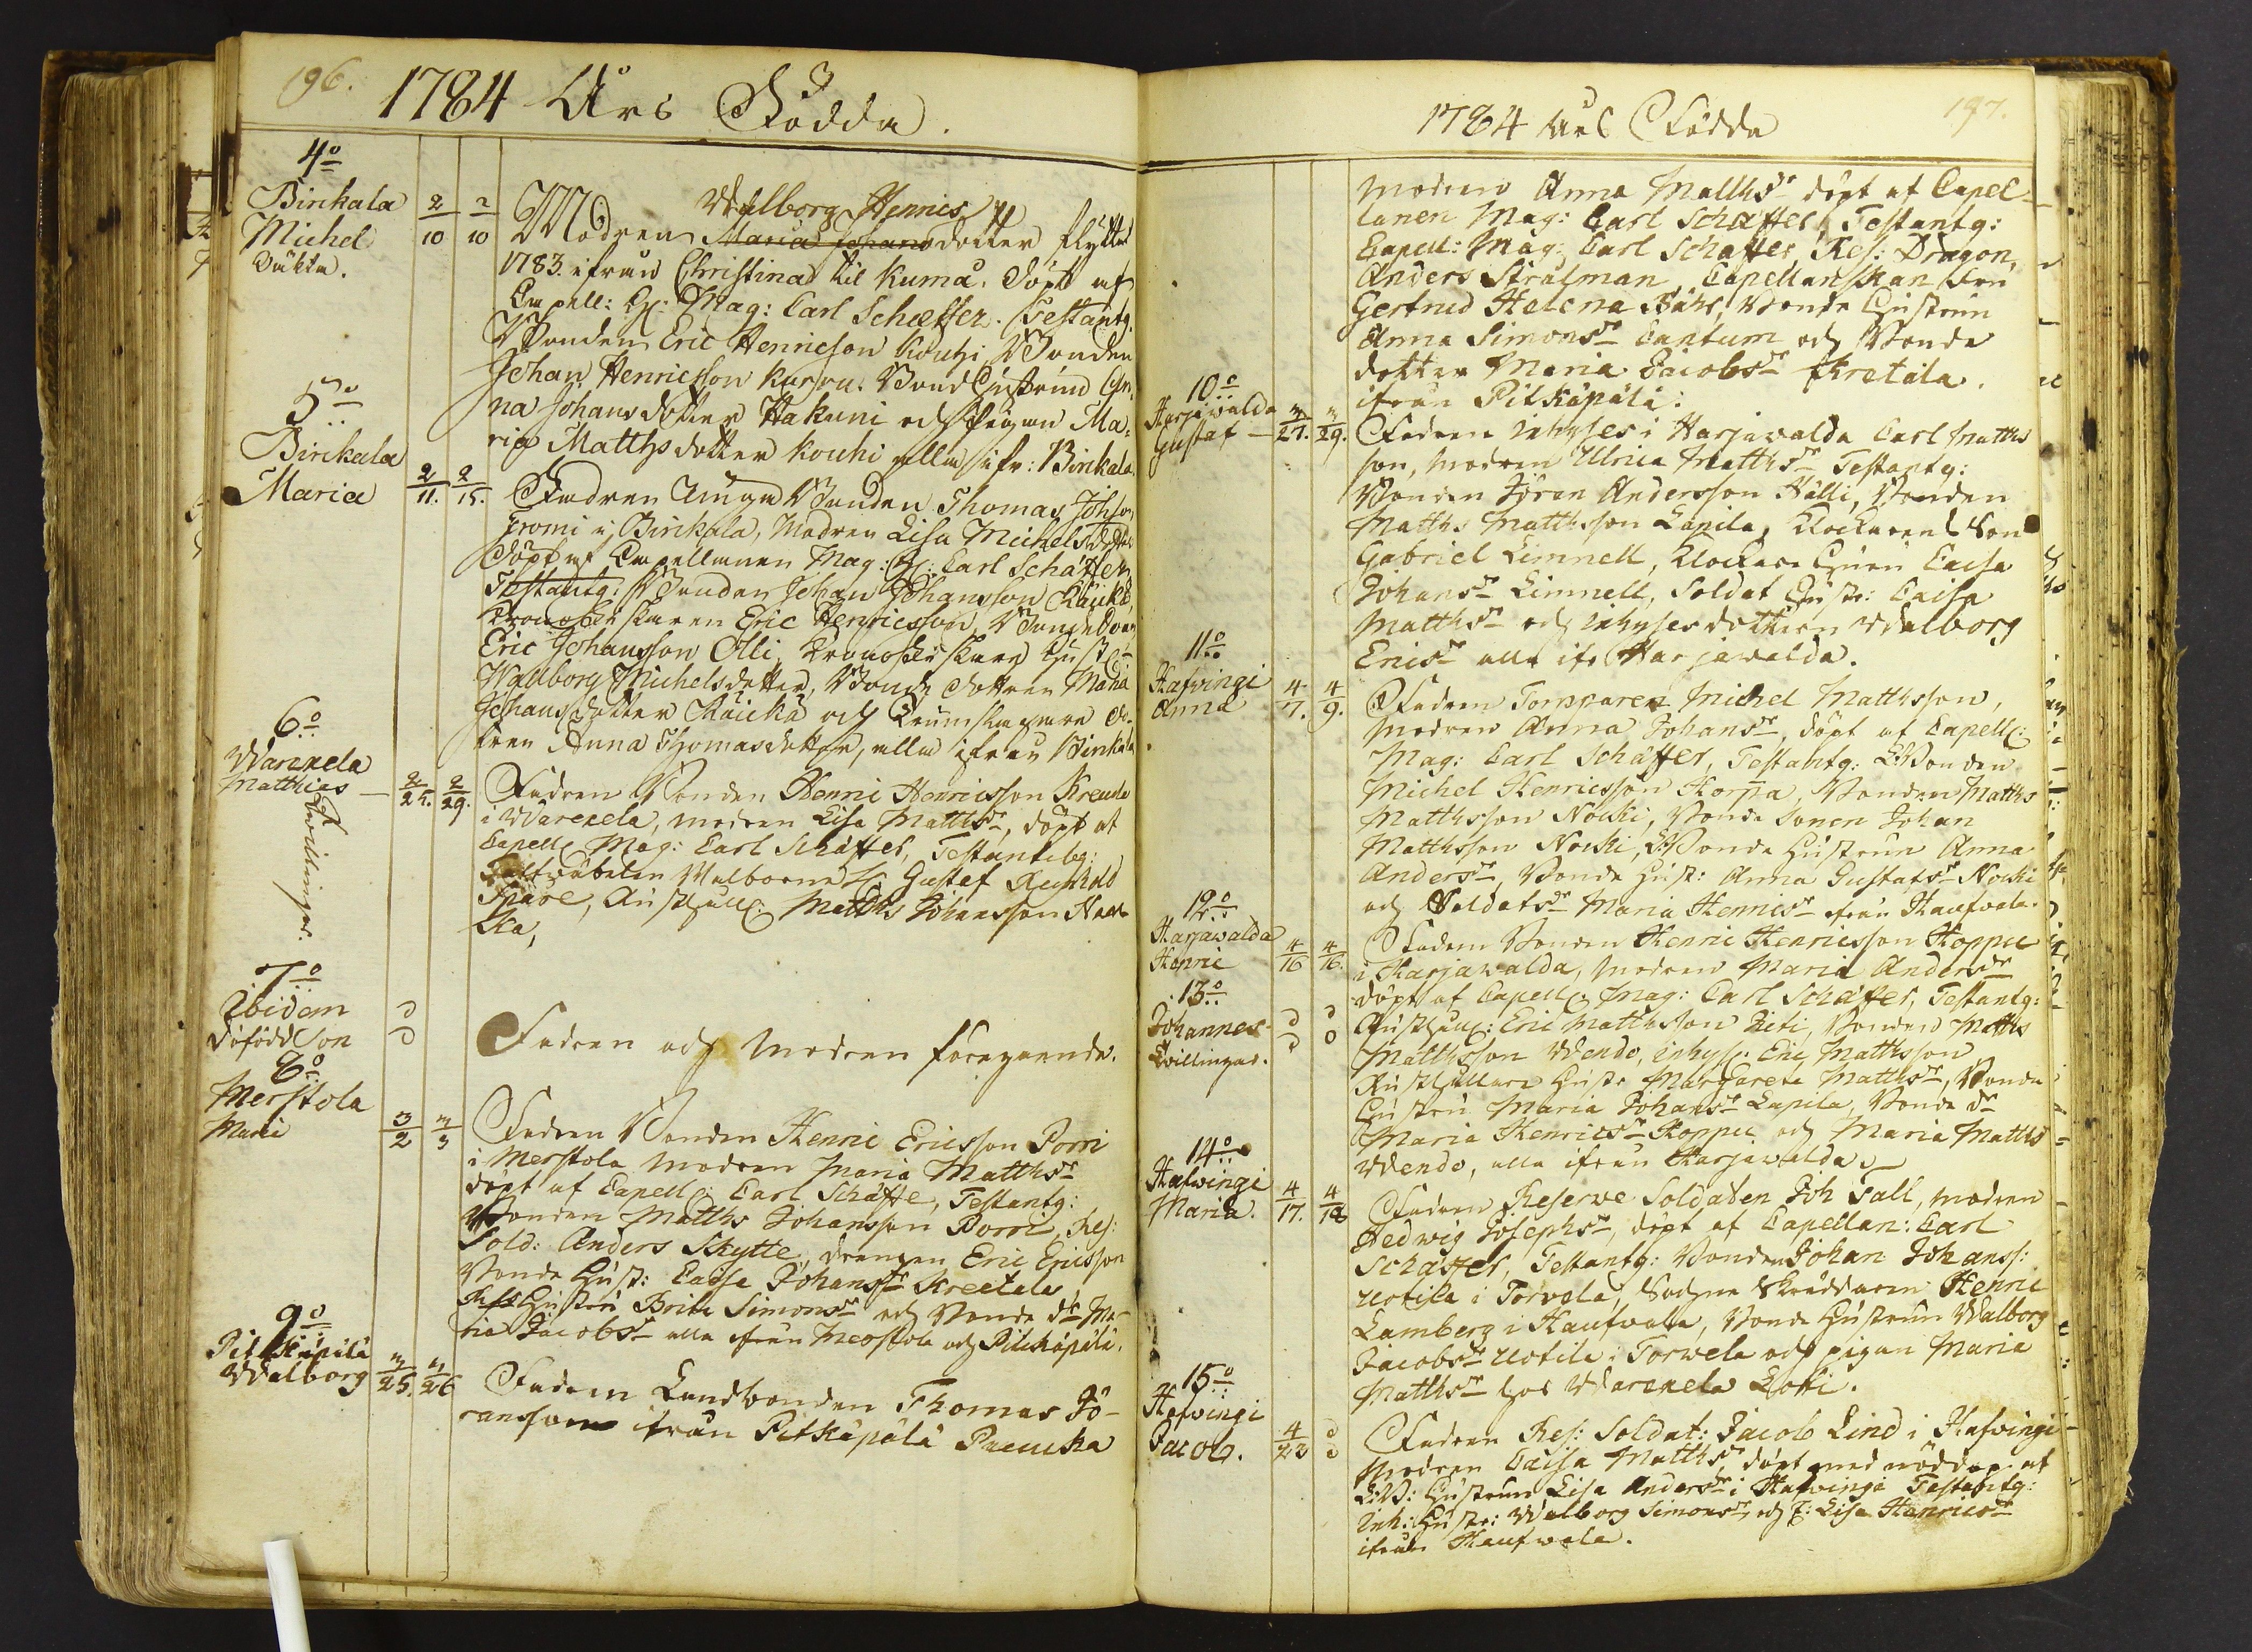 196.
1784 Års Födda.
4o
Birikala
Michel
oäkta.
2/10 2/10
Walborg Henrics
Modren Maria Johansdotter flyttad
1783 ifrån Christina til Kumå. döpt af
Capell: H: Mag: Carl Scheffer. Testantg.
Bonden Eric Henricson Kouhi, Bonden
Johan Henricsson Bond Hustrun An
na Johansdotter Hakuni och Pigan Ma-
ria Matthsdotter Kouhi alla ifr: Birikala.
5o
Birikala
Maria
2/11. 2/15.
Fadren Unga Bonden Thomas Johsson
i Birikala, Modren Lisa Michelsdotter
döpt af Capellanen Mag: H: Carl Schäffer
Testantg: Bonden Johan Johansson Räickä,
Eric Henricsson, Bondedren
Eric Johansson Olli, Hust:
Wallborg Michelsdotter, Bonde dottren Maria
Johansdotter Räickä och
tren Anna Thomasdotter, alla ifrån Birikala
6o
Warekela
Matthias
Tvillingar.
2/25. 2/29.
Fadren Bonden Henric Henricsson
i Warekela, modren Lisa Matthsdr, döpt af
Capell. Mag: Carl Schäffer, Testantibg:
Fältwäbelen Wälborne H: Gustaf Reinhold
Spåre, Rusthåll: Matths Johansson
ka,
7o
Ibidem
dödfödd Son
Fadren och Modren föregående.
8o
Merstola
Maria
3/2 3/3
Fadren Bonden Henric Ericsson Porri
i Merstola, modren Maria Matthsdr
döpt af Capell: Carl Schäffe, Testantg:
Bonden Matths Johansson Porri, Res:
Sold: Anders Skytte, drengen Eric Ericsson
Bonde Hust: Caisa Johansdr Kreetala
Hustru Brita Simonsdr och Bonde dr Ma-
ria Jacobsdr alla ifrån Merstola och Pitkäpälä.
9o
Pitkäpälä
Walborg
3/25. 3/26
Fadren Landbonden Thomas Jö-
ransson ifrån Pitkäpälä
1784 Års Födda
197.
modren Anna Matthsdr döpt af Capel-
lanen Mag: Carl Schäffer, Testantg:
Capell: Mag: Carl Schäffer, Res: Dragon,
Anders Strålman, Capellanskan Fru
Gertrud Helena Bonde Hustrun
Anna Simonsdr Cantum och Bonde
dotter Maria Jacobsdr Kretala.
ifrån Pitkäpälä:
10o
Harjawalda
Gustaf
3/27. 3/29.
Fadren Inhyses i Harjawalda Carl Matths
son, modren Ulrica Matthsdr Testantg:
Bonden Jöran Andersson Hälli, Bonden
Matths Matthsson Lapila, Klockarens Son
Gabriel Limnell, Klockare Hiru Caisa
Johansdr Limnell, Soldat Hustr: Caisa
Matthsdr och Inhyses dottren Walborg
Ericsdr alla ifr Harjawalda.
11o
Hafwingi
Anna
4/7. 4/9.
Fadren Torpparen Michel Matthsson,
Modren Anna Johansdr, döpt af Capell:
Mag: Carl Schäffer, Testantg: Bonden
Michel Henricsson Korpa, Bonden Matths
Matthsson Nocki, Bonde Sonen Johan
Matthsson Nocki, Bonde Hustrun Anna
Andersdr, Bonde Hust: Anna Gustafsdr Nocki
och Soldatsdr Maria Henricsdr ifrån Kaufwala.
12o
Harjawalda
Henric
4/16 4/16.
Fadren Bonden Henric Henricsson Hoppu
i Harjawalda, modren Maria Andersdr
döpt af Capell: Mag: Carl Schäffer, Testantg:
13o
Johannes
Tvillingar.
Rusthåll: Eric Matthsson Jieti, Bonden Matths
Matthsson Wendo, inhys: Eric Matthsson
Rusthållare Hustr Margareta Matthsdr, Bonde
Hustru Maria Johansdr Lapila, Bonde dr
Maria Henricsdr Hoppu, och Maria Matths
Wendo, alla ifrån Harjawalda.
14o
Hafwingi
Maria.
4/17. 4/18
Fadren Reserve Soldaten Joh Fall, modren
Hedwig Josephsdr, döpt af Capellan: Carl
Schäffer, Testantg: Bonden Johan Johanss:
Uotila i Torvola, Sockne Skräddaren Henric
Lamberg i Kaufwala, Bonde Hustrun Walborg
Jacobsdr Uotila i Torwela och pigan Maria
Matthsdr hos Warekela Lotti.
15o
Hafwingi
Jacob.
4/22
Fadren Res: Soldat: Jacob Lind i Hafwingi
Modren Caisa Matthsdr, döpt med nöddop af
Hustrun Lisa Andersdr i Hafwingi Testantg:
Inh: Hustr: Walborg Simonsdr, och P: Lisa Henricsdr
ifrån Kaufwala.